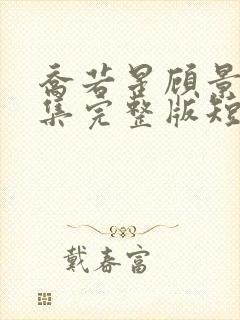 喬若星顾景
集完整版短
戴春富